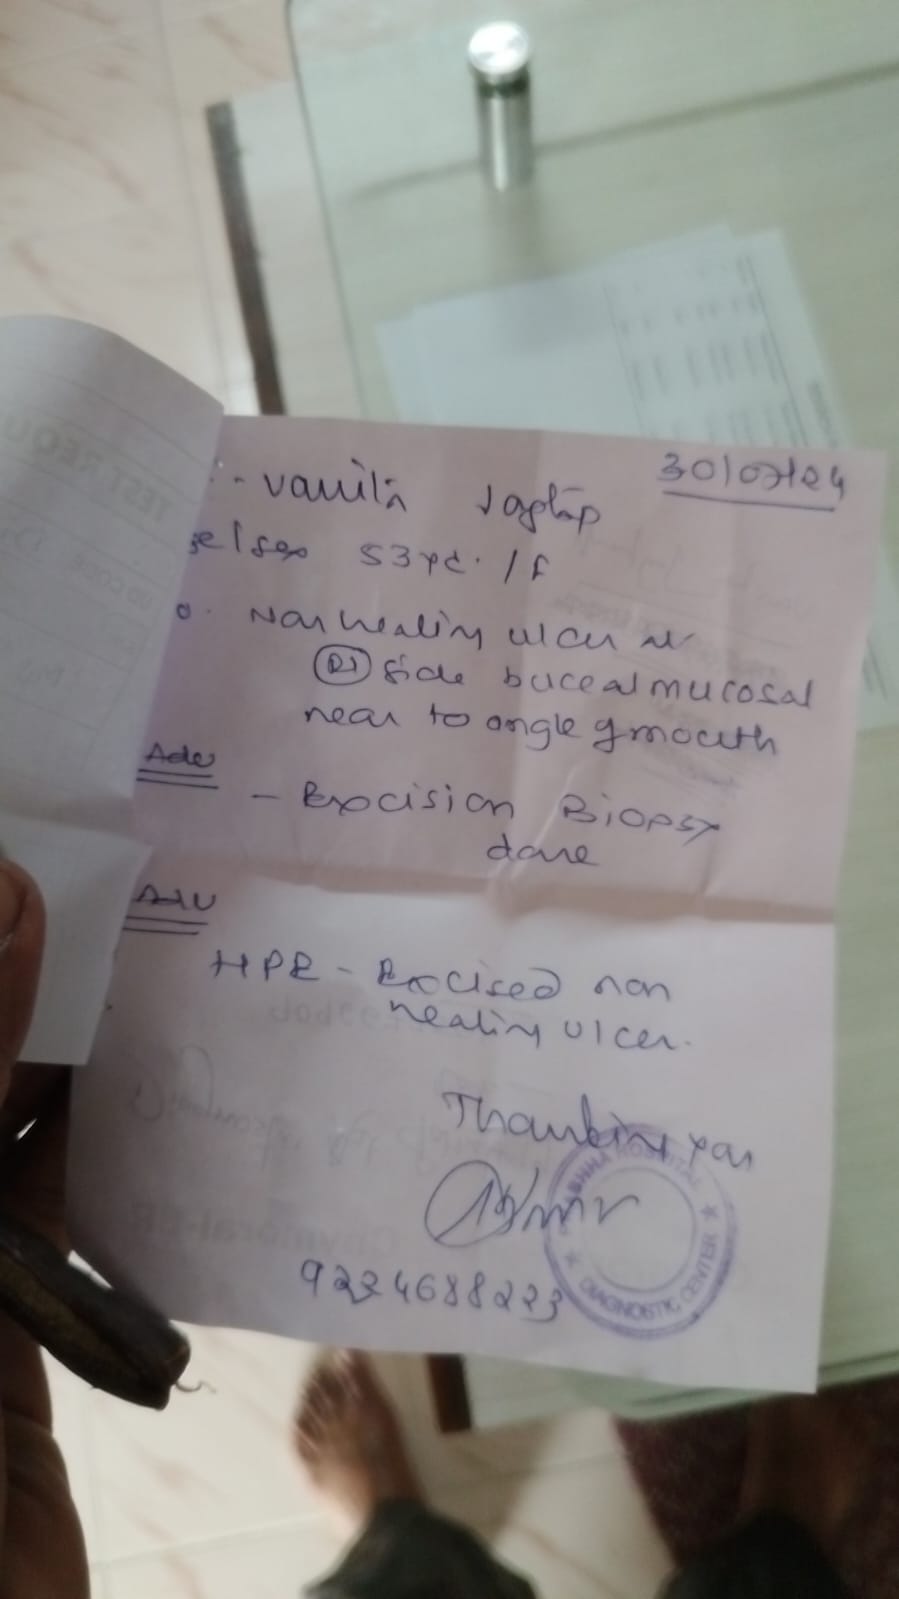 30/07/24
:- vanita Jagtap
ge/sex 53yr. / F
o. Non healing ulcer at
(Rt) side buccal mucosal
near to angle of mouth
Adv
- Excision Biopsy
done
Adv
HPR - Excised non
healing ulcer.
Thanking you
HOSPITAL
★ DIAGNOSTIC CENTER ★
9234688223